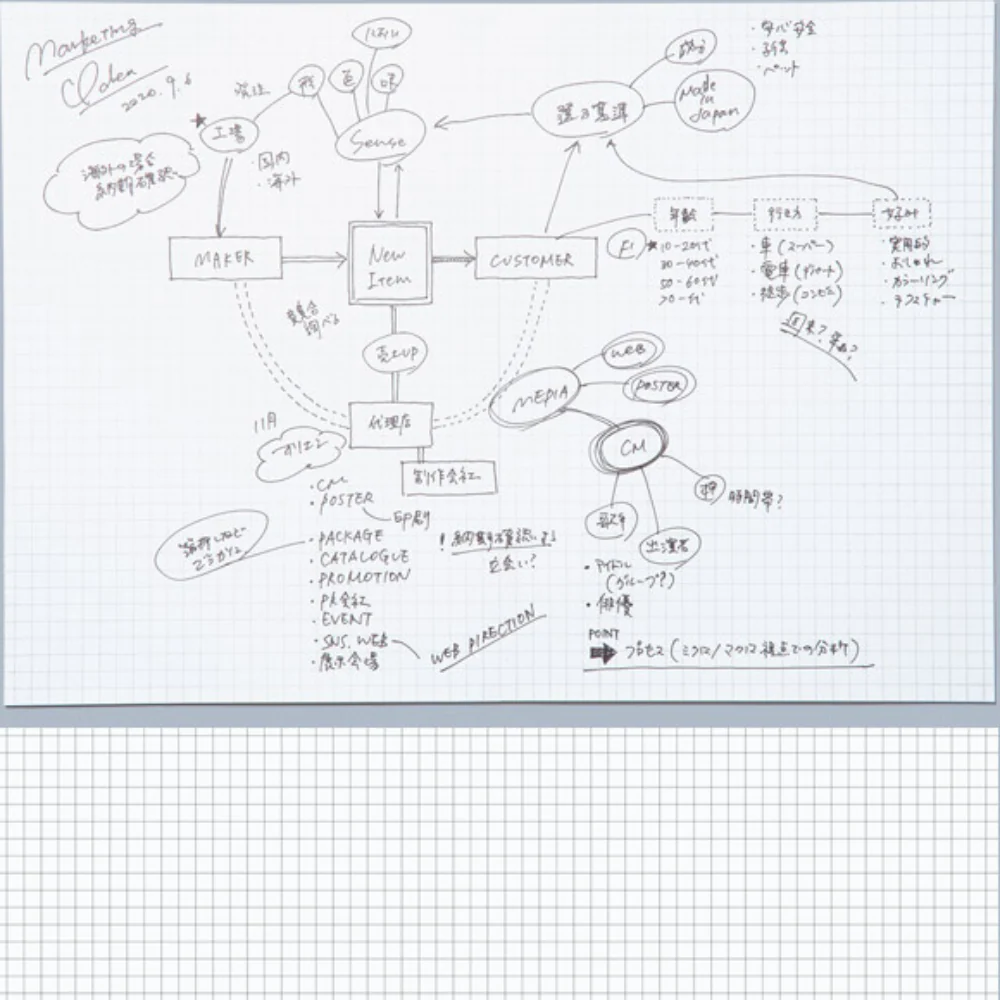 Marketing
2020.9.6
発注
工場
海外の場合
納期確認
・国内
・海外
形
色
Sense
選ぶ基準
成分
Made
in
Japan
・安心安全
・子供
・ペット
MAKER
New
Item
CUSTOMER
競合
調べる
売上UP
代理店
制作会社
11月
オリエン
年齢
F1
10-20代
30-40代
50-60代
70-代
行き方
・車(スーパー)
・電車(デパート)
・徒歩(コンビニ)
好み
・実用的
・おしゃれ
・カラーリング
・テクスチャー
MEDIA
WEB
POSTER
CM
時間帯?
歌手
出演者
・アイドル
(グループ?)
・俳優
・CM
・POSTER
印刷
・PACKAGE
・CATALOGUE
・PROMOTION
・PR会社
・EVENT
・SNS. WEB
・展示会場
WEB DIRECTION
! 納期確認する
立会い?
POINT
プロセス(ミクロ/マクロ視点での分析)